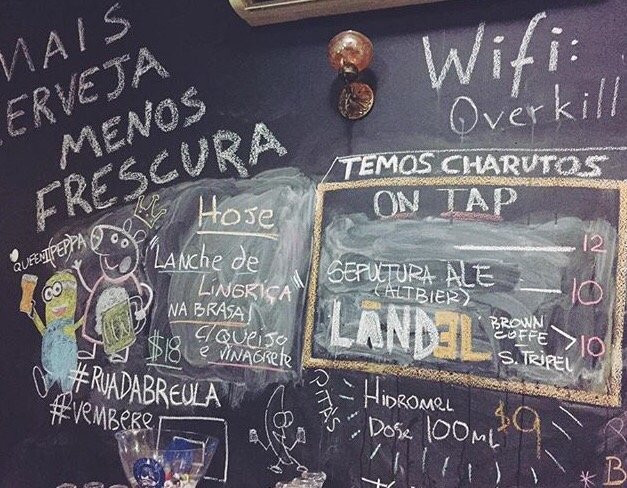 MAIS
CERVEJA
MENOS
FRESCURA
Wifi:
Overkill
TEMOS CHARUTOS
ON TAP
12
SEPULTURA ALE
(ALTBIER)
10
LÄNDEL
BROWN
COFFE
S. TRIPEL
10
QUEENIPEPPA
HOJE
"LANCHE DE
LINGRIÇA"
NA BRASA!
C/QUEIJO
E VINAGRETE
$18
#RUADABREULA
#VEMBEBE
HIDROMEL
DOSE 100ML
$9